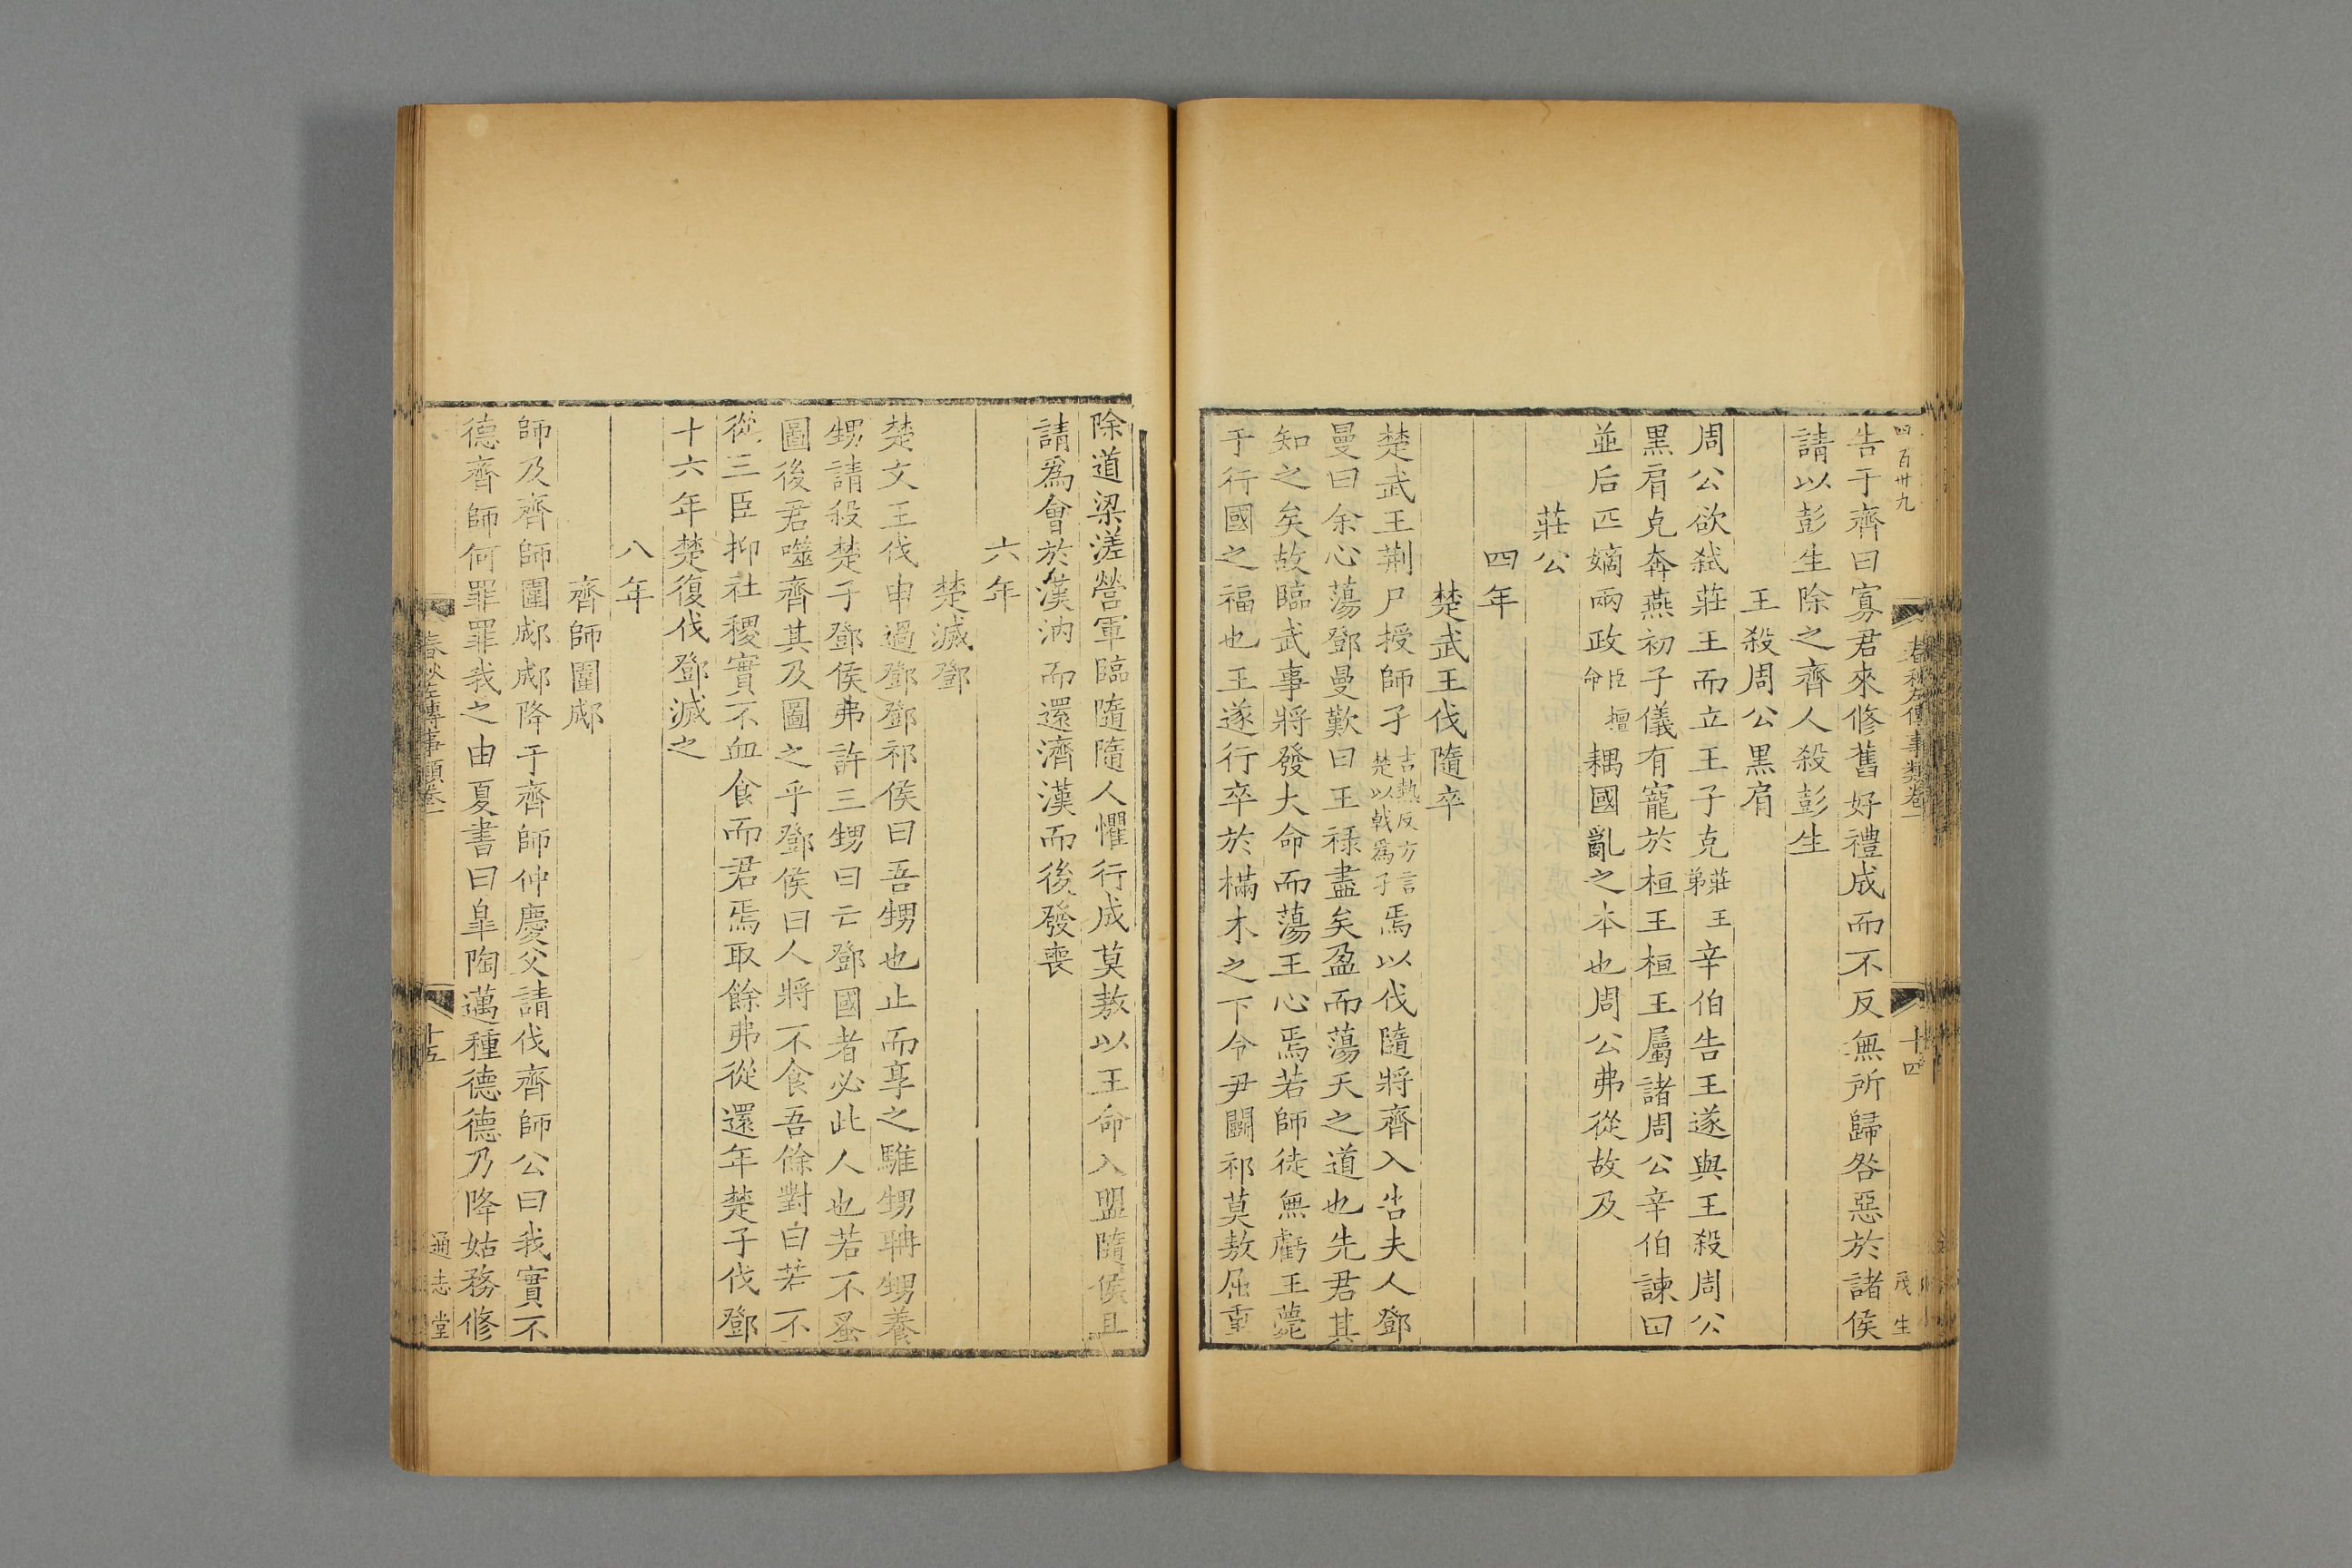 四百卅九
春秋左傳事類卷一
十四
茂生
告于齊曰寡君來修舊好禮成而不反無所歸咎惡於諸侯
請以彭生除之齊人殺彭生
王殺周公黑肩
周公欲弒莊王而立王子克莊王弟辛伯告王遂與王殺周公
黑肩克奔燕初子儀有寵於桓王桓王屬諸周公辛伯諫曰
並后匹嫡兩政臣擅命耦國亂之本也周公弗從故及
莊公
四年
楚武王伐隨卒
楚武王荆尸授師孑吉熱反方言楚以戟爲孑焉以伐隨將齊入告夫人鄧
曼曰余心蕩鄧曼歎曰王禄盡矣盈而蕩天之道也先君其
知之矣故臨武事將發大命而蕩王心焉若師徒無虧王薨
于行國之福也王遂行卒於樠木之下令尹鬬祁莫敖屈重
除道梁溠營軍臨隨隨人懼行成莫敖以王命入盟隨侯且
請爲會於漢汭而還濟漢而後發喪
六年
楚滅鄧
楚文王伐申過鄧鄧祁侯曰吾甥也止而享之騅甥聃甥養
甥請殺楚子鄧侯弗許三甥曰亡鄧國者必此人也若不蚤
圖後君噬齊其及圖之乎鄧侯曰人將不食吾餘對曰若不
從三臣抑社稷實不血食而君焉取餘弗從還年楚子伐鄧
十六年楚復伐鄧滅之
八年
齊師圍郕
師及齊師圍郕郕降于齊師仲慶父請伐齊師公曰我實不
德齊師何罪罪我之由夏書曰皐陶邁種德德乃降姑務修
春秋左傳事類卷一
十五
通志堂